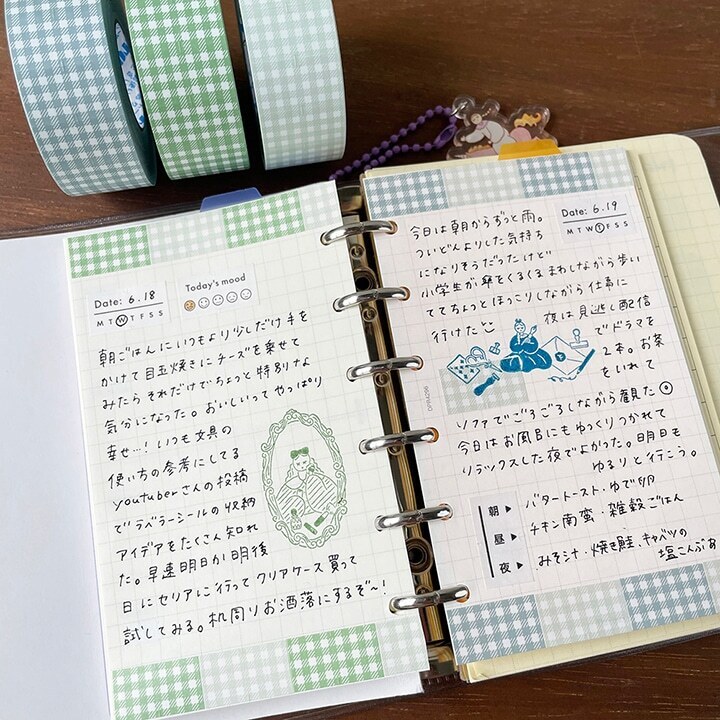 Date: 6.18
M T W T F S S
Today's mood
朝ごはんにいつもより少しだけ手を
かけて目玉焼きにチーズを乗せて
みたらそれだけでちょっと特別な
気分になった。おいしいって やっぱり
幸せ…! いつも文具の
使い方の参考にしてる
youtuberさんの投稿
でラベラーシールの収納
アイデアをたくさん知れ
た。早速明日か明後
日にセリアに行ってクリアケース買って
試してみる。机周りお洒落にするぞ〜!
Date: 6.19
M T W T F S S
今日は朝からずっと雨。
ついどんよりした気持ち
になりそうだったけど
小学生が傘をくるくるまわしながら歩い
ててちょっとほっこりしながら仕事に
行けたとこ
夜は見逃し配信
でドラマを
2本。お茶
をいれて
ソファでごろごろしながら観た
今日はお風呂にもゆっくりつかれて
リラックスした夜でよかった。明日も
ゆるりと行こう。
朝 ▶ バタートースト・ゆで卵
昼 ▶ チキン南蛮・雑穀ごはん
夜 ▶ みそ汁・焼き鮭、キャベツの
塩こんぶあ